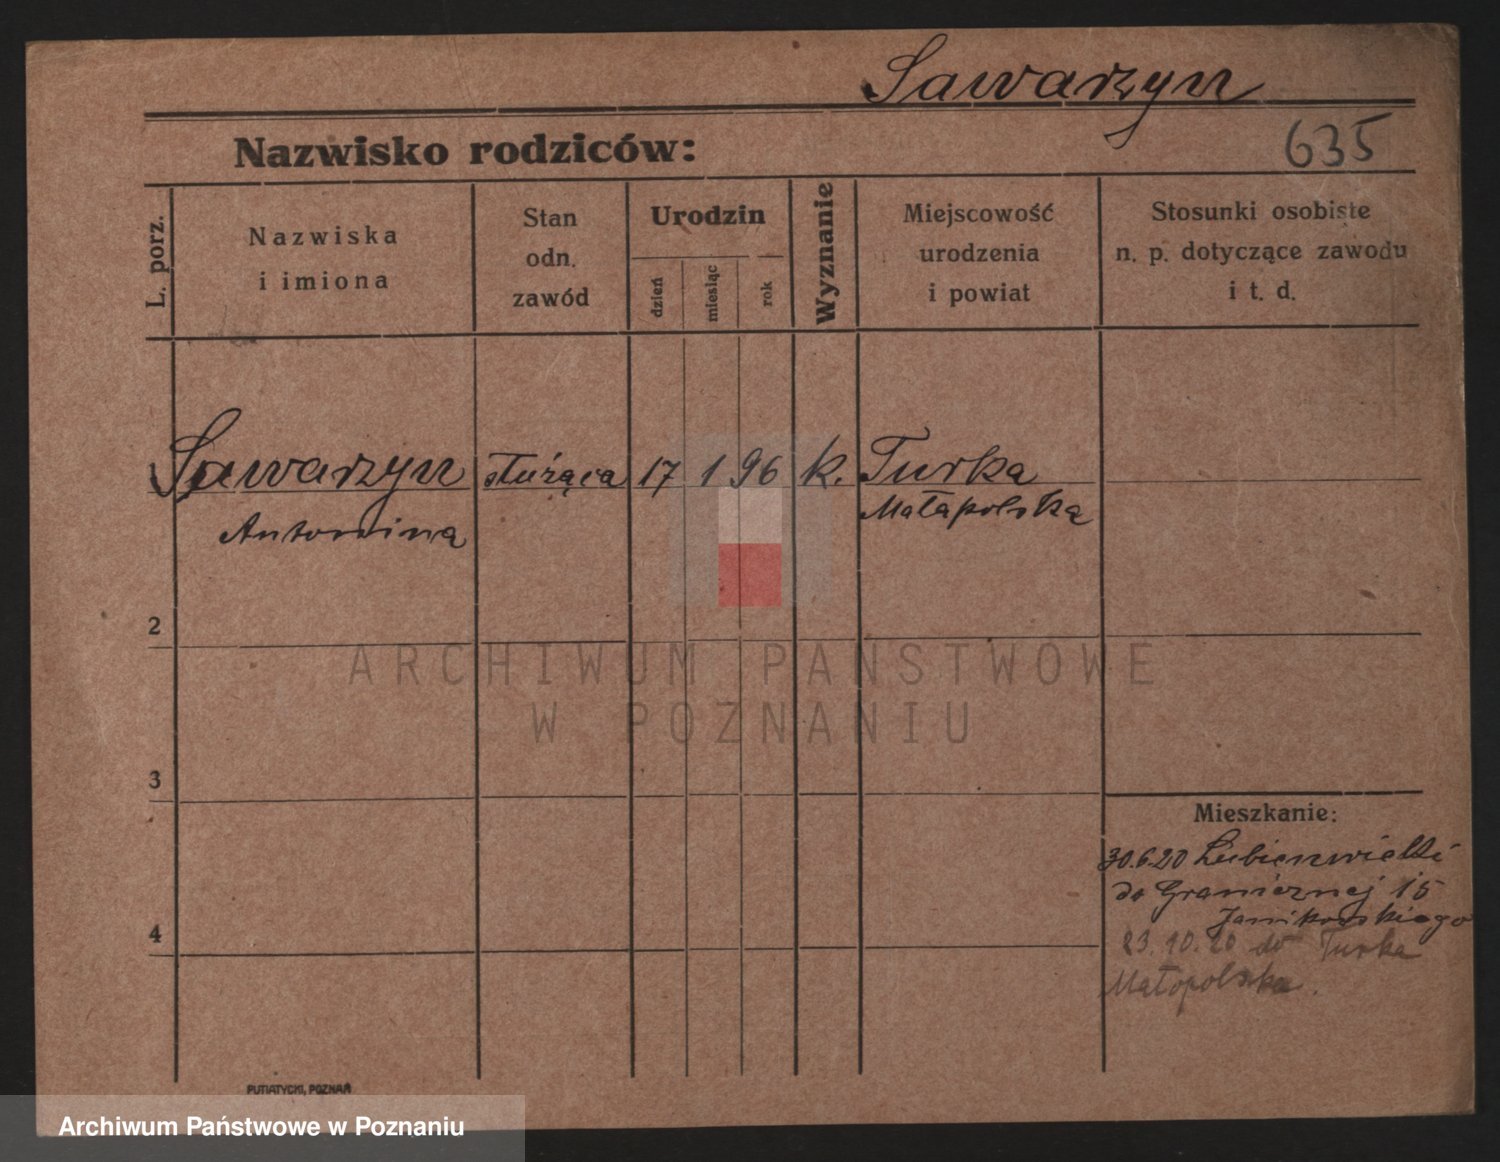 Sawarzyn
Nazwisko rodziców:
635
L. porz.
Nazwiska
i imiona
Stan
odn.
zawód
Urodzin
dzień
miesiąc
rok
Wyznanie
Miejscowość
urodzenia
i powiat
Stosunki osobiste
n. p. dotyczące zawodu
i t. d.
1 Sawarzyn służąca 17 1 96 k. Turka
Antonina Małapolska
2
ARCHIWUM PAŃSTWOWE
W POZNANIU
3
Mieszkanie:
30.6.20 Lubienwielki
do Granicznej 15
Janikowskiego
4
23.10.20 do Turka
Małopolska.
PUTIATYCKI, POZNAŃ
Archiwum Państwowe w Poznaniu